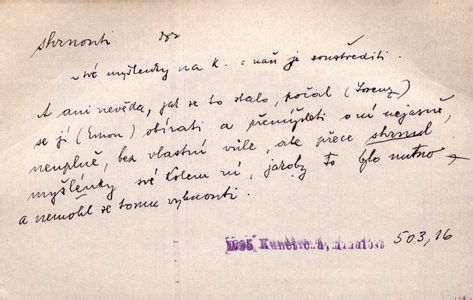 shrnouti
~ své myšlenky na k. : naň je soustřediti.
A ani nevěda, jak se to stalo, počal (Lorenz)
se jí (Emou) obírati a přemýšleti o ní nejasně,
neuplně, bez vlastní vůle, ale přece shrnul
myšlénky své kolem ní, jakoby to blo nutno
a nemohl se tomu vyhnouti.
1895 503,16